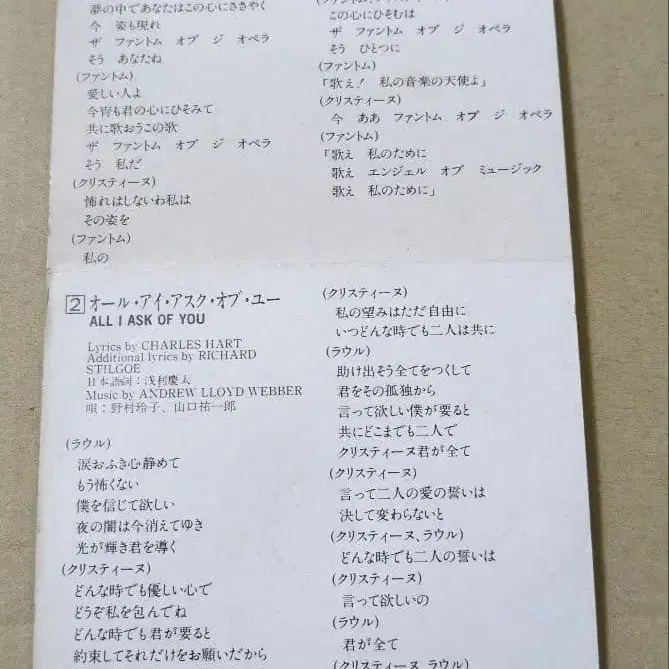 夢の中であなたはこの心にささやく
今　姿も現れ
ザ　ファントム　オブ　ジ　オペラ
そう　あなたね
(ファントム)
愛しい人よ
今宵も君の心にひそみて
共に歌おうこの歌
ザ　ファントム　オブ　ジ　オペラ
そう　私だ
(クリスティーヌ)
怖れはしないわ私は
その姿を
(ファントム)
私の
この心にひそむは
ザ　ファントム　オブ　ジ　オペラ
そう　ひとつに
(ファントム)
「歌え!　私の音楽の天使よ」
(クリスティーヌ)
今　ああ　ファントム　オブ　ジ　オペラ
(ファントム)
「歌え　私のために
歌え　エンジェル　オブ　ミュージック
歌え　私のために」
2 オール・アイ・アスク・オブ・ユー
ALL I ASK OF YOU
Lyrics by CHARLES HART
Additional lyrics by RICHARD
STILGOE
日本語詞：浅利慶太
Music by ANDREW LLOYD WEBBER
唄：野村玲子、山口祐一郎
(ラウル)
涙おふき心静めて
もう怖くない
僕を信じて欲しい
夜の闇は今消えてゆき
光が輝き君を導く
(クリスティーヌ)
どんな時でも優しい心で
どうぞ私を包んでね
どんな時でも君が要ると
約束してそれだけをお願いだから
(クリスティーヌ)
私の望みはただ自由に
いつどんな時でも二人は共に
(ラウル)
助け出そう全てをつくして
君をその孤独から
言って欲しい僕が要ると
共にどこまでも二人で
クリスティーヌ君が全て
(クリスティーヌ)
言って二人の愛の誓いは
決して変わらないと
(クリスティーヌ、ラウル)
どんな時でも二人の誓いは
(クリスティーヌ)
言って欲しいの
(ラウル)
君が全て
(クリスティーヌ、ラウル)